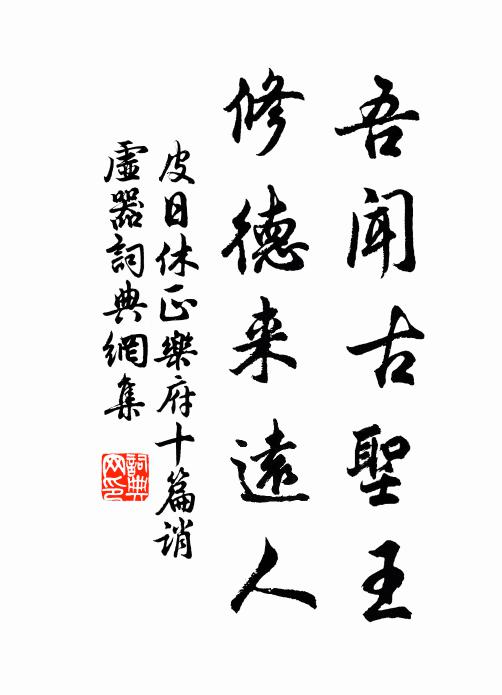 吾聞古聖王
修德来遠人
皮日休正樂府十篇誚
虛器詞典網集
詞典网印